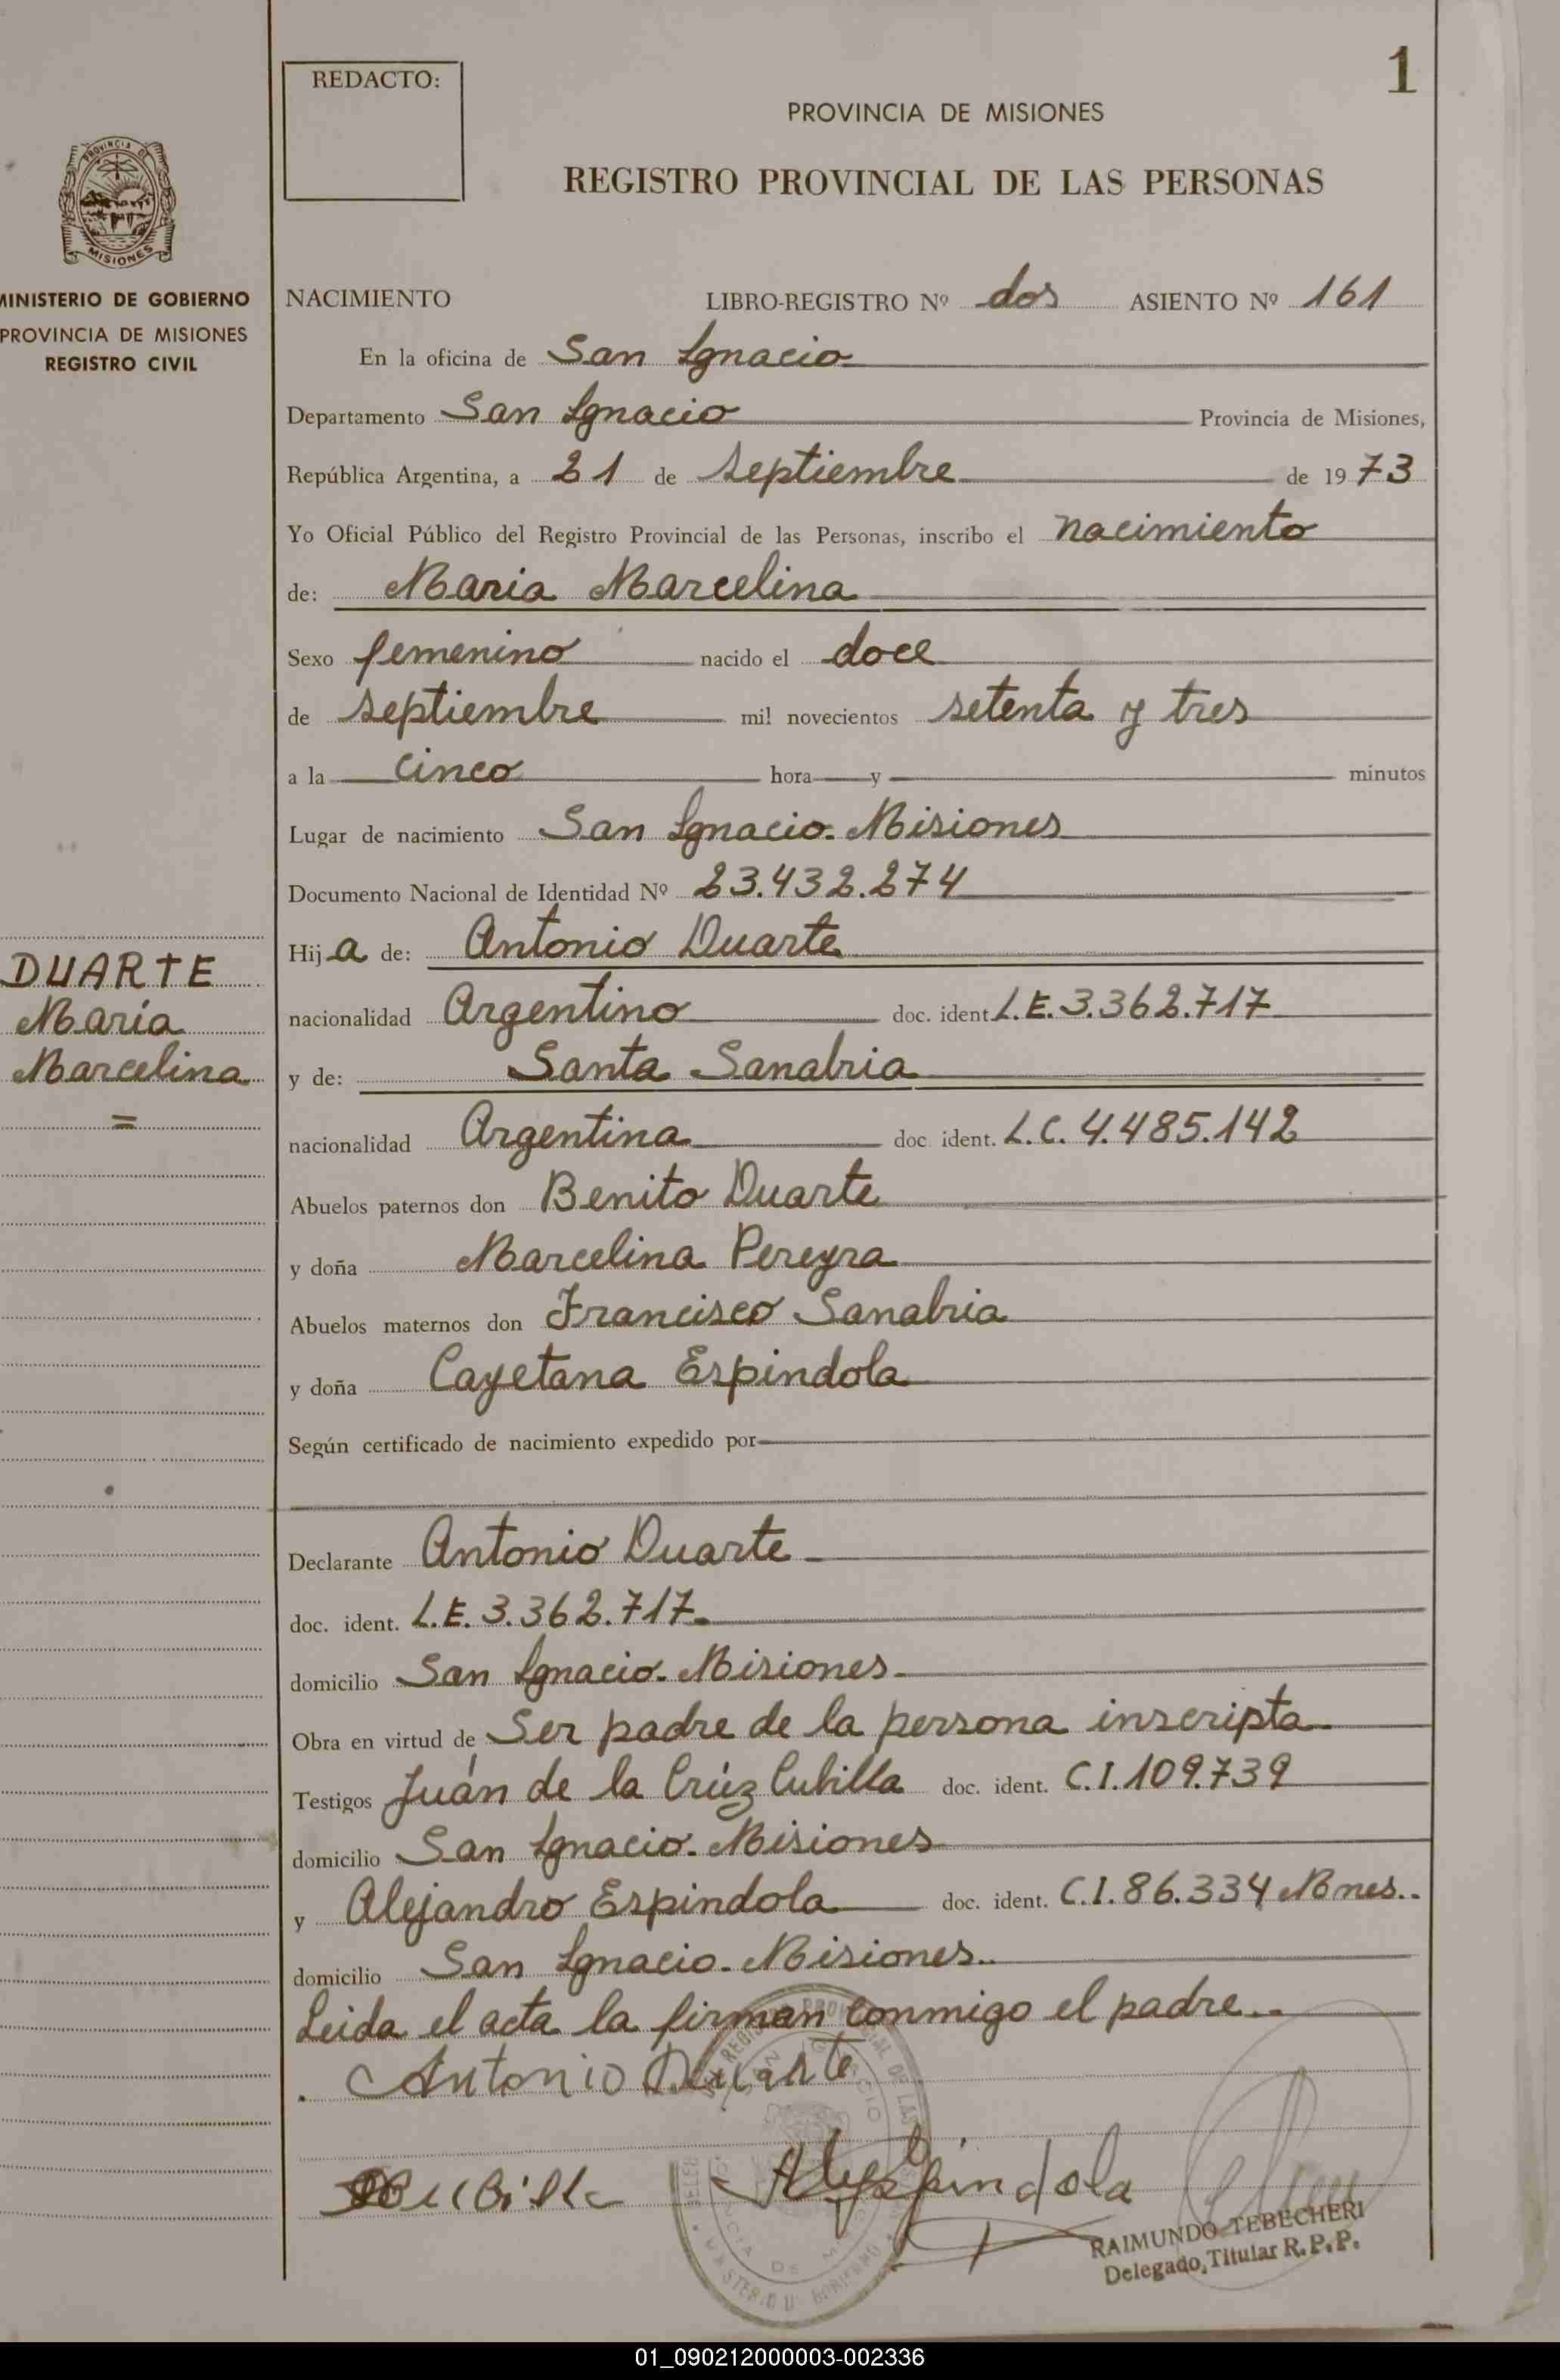 1
REDACTO:
PROVINCIA DE MISIONES
REGISTRO PROVINCIAL DE LAS PERSONAS
PROVINCIA DE
MISIONES
MINISTERIO DE GOBIERNO
PROVINCIA DE MISIONES
REGISTRO CIVIL
NACIMIENTO LIBRO-REGISTRO Nº dos ASIENTO Nº 161
En la oficina de San Ignacio
Departamento San Ignacio Provincia de Misiones,
República Argentina, a 21 de septiembre de 1973
Yo Oficial Público del Registro Provincial de las Personas, inscribo el nacimiento
de: Maria Marcelina
Sexo femenino nacido el doce
de septiembre mil novecientos setenta y tres
a la cinco hora y minutos
Lugar de nacimiento San Ignacio. Misiones
Documento Nacional de Identidad Nº 23.432.274
Hija de: Antonio Duarte
nacionalidad Argentino doc. ident. L.E. 3.362.717
y de: Santa Sanabria
nacionalidad Argentina doc. ident. L.C. 4.485.142
Abuelos paternos don Benito Duarte
y doña Marcelina Pereyra
Abuelos maternos don Francisco Sanabria
y doña Cayetana Espindola
Según certificado de nacimiento expedido por
DUARTE
María
Marcelina
=
Declarante Antonio Duarte
doc. ident. L.E. 3.362.717
domicilio San Ignacio. Misiones
Obra en virtud de Ser padre de la persona inscripta
Testigos Juán de la Crúz Cubilla doc. ident. C.I. 109.739
domicilio San Ignacio. Misiones
y Alejandro Espindola doc. ident. C.I. 86.334 Mnes..
domicilio San Ignacio. Misiones..
Leida el acta la firman conmigo el padre..
Antonio Duarte
RAIMUNDO TEBECHERI
Delegado Titular R.P.P.
01_090212000003-002336